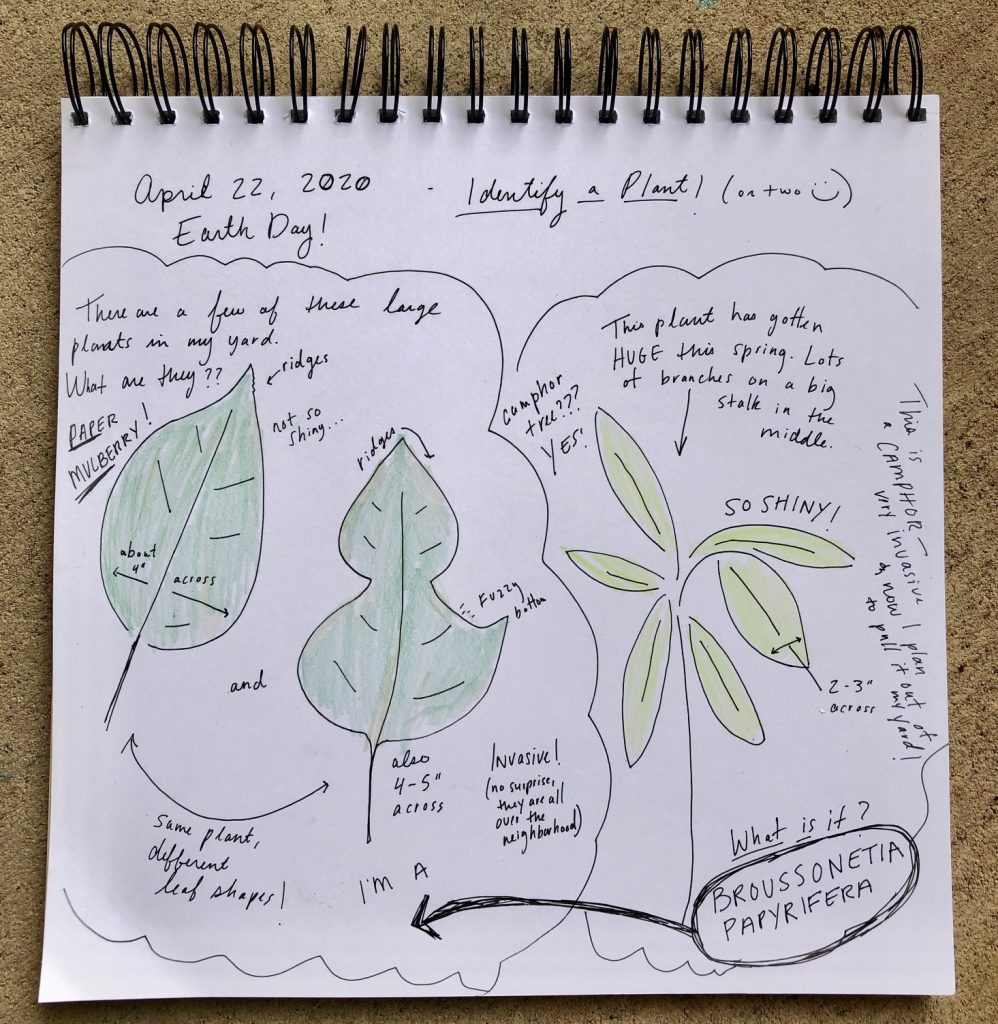 April 22, 2020 - Identify a Plant! (or two
Earth Day!
There are a few of these large
plants in my yard.
What are they??
PAPER
MULBERRY!
ridges
not so
shiny...
ridges
about
4"
across
and
Fuzzy
bottom
also
4-5"
across
Same plant,
different
leaf shapes!
Invasive!
(no surprise,
they are all
over the
neighborhood)
I'M A
This plant has gotten
HUGE this spring. Lots
of branches on a big
stalk in the
middle.
camphor
tree???
YES!
SO SHINY!
2-3"
across
This is
a CAMPHOR-
very invasive
& now I plan
to pull it out of
my yard!
What is it?
BROUSSONETIA
PAPYRIFERA